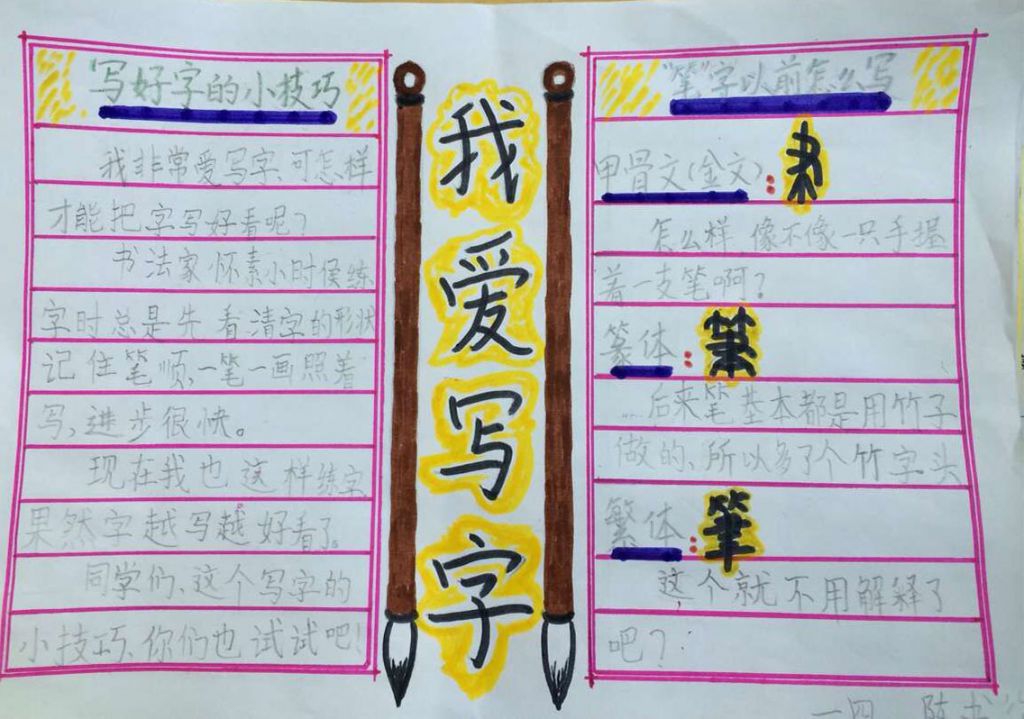 写好字的小技巧
我非常爱写字,可怎样
才能把字写好看呢?
书法家怀素小时候练
字时总是先看清字的形状
记住笔顺,一笔一画照着
写,进步很快。
现在我也这样练字
果然字越写越好看了。
同学们、这个写字的
小技巧、你们也试试吧!
我爱写字
"笔"字以前怎么写
甲骨文(金文):
怎么样,像不像一只手握
着一支笔啊?
篆体:
后来笔基本都是用竹子
做的、所以多了个竹字头
繁体:筆
这个就不用解释了
吧?
一四 陈书